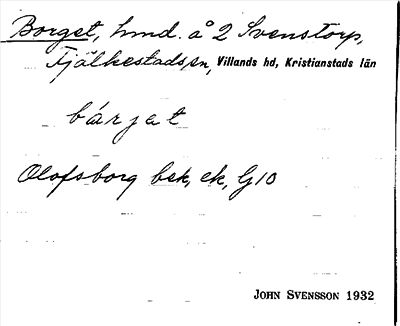 Borget, hmd. å 2 Svenstorp,
Fjälkestads sn, Villands hd, Kristianstads län
bárjet
Olofsborg bek, ek, G10
JOHN SVENSSON 1932